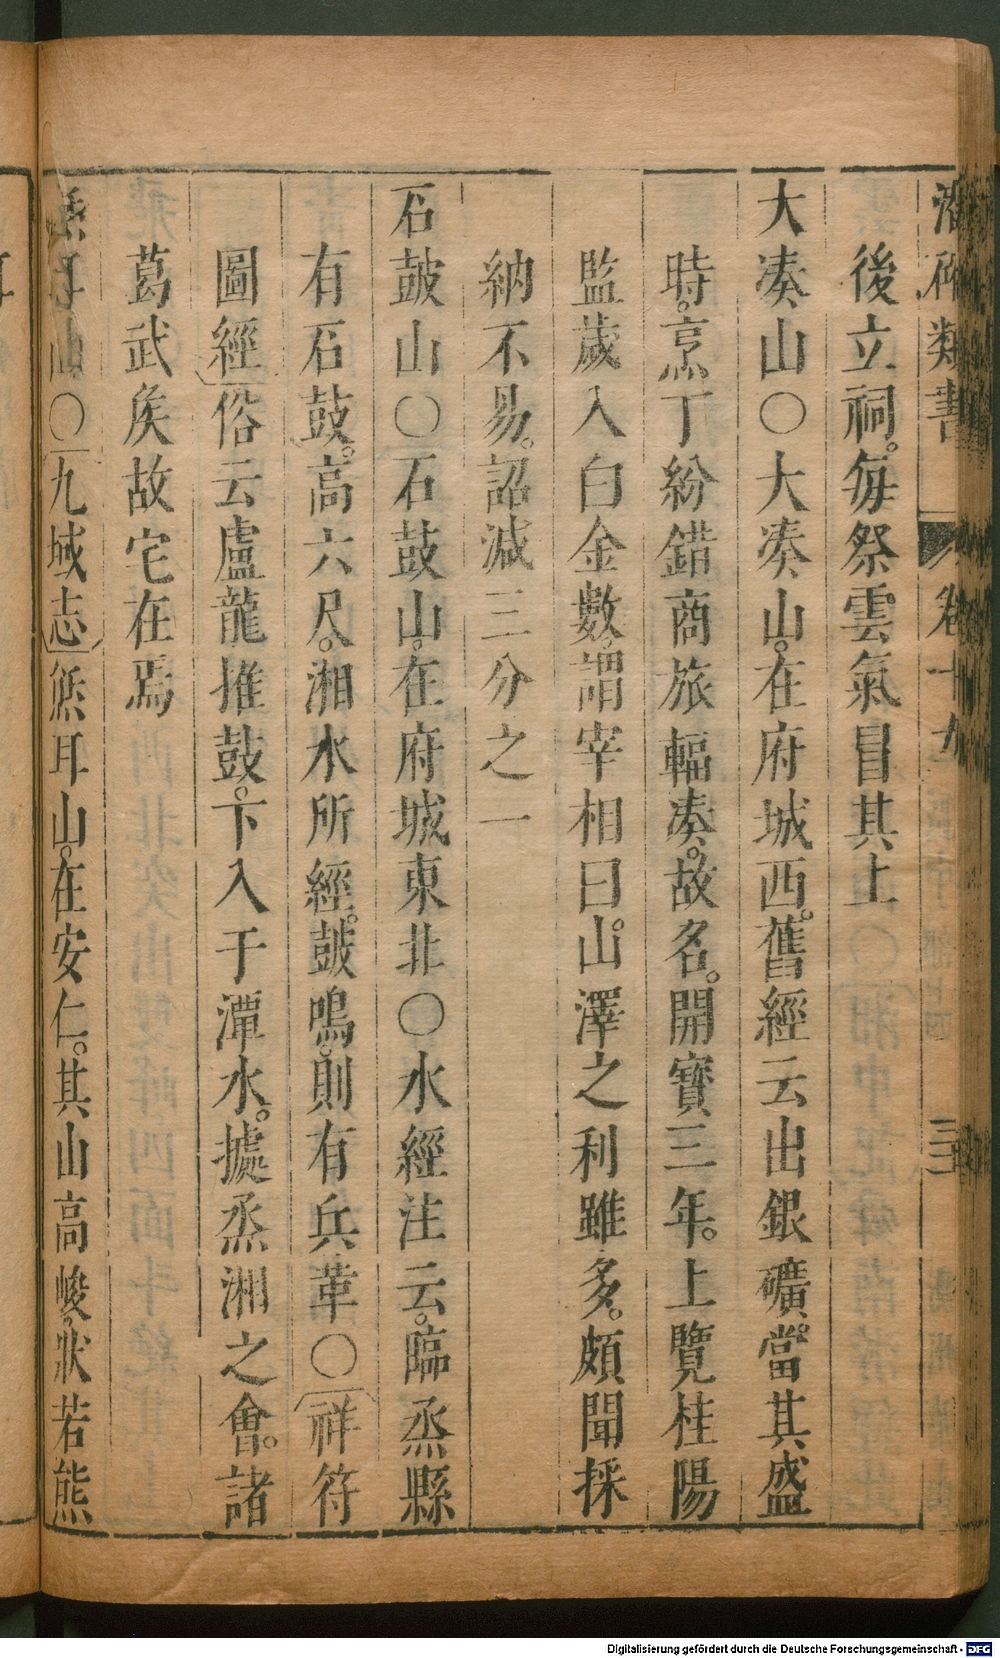 後立祠。每祭雲氣冒其上
大凑山○大凑山。在府城西。舊經云出銀礦。當其盛
時。烹丁紛錯商旅輻凑。故名。開寶三年。上覽桂陽
監歲入白金數。謂宰相曰。山澤之利雖多。頗聞採
納不易。詔減三分之一
石鼓山○石鼓山。在府城東北○水經注云。臨烝縣
有石鼓。高六尺。湘水所經。鼓鳴。則有兵革○祥符
圖經俗云盧龍推鼓。卞入于潭水。據烝湘之會。諸
葛武矦故宅在焉
熊耳山○九域志熊耳山。在安仁。其山高峻。狀若熊
類書 卷十九
Digitalisierung gefördert durch die Deutsche Forschungsgemeinschaft - DFG